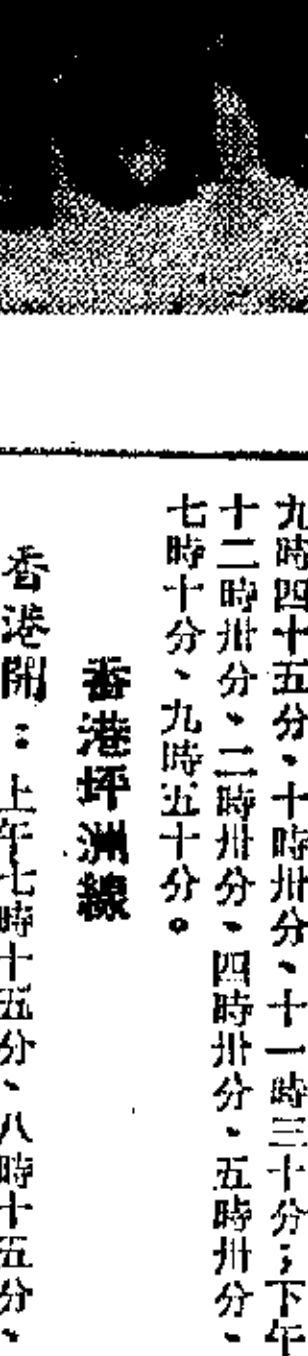 九時四十五分、十時卅分、十一時三十分；下午
十二時卅分、二時卅分、四時卅分、五時卅分、
七時十分、九時五十分。
香港坪洲線
香港開：上午七時十五分、八時十五分、